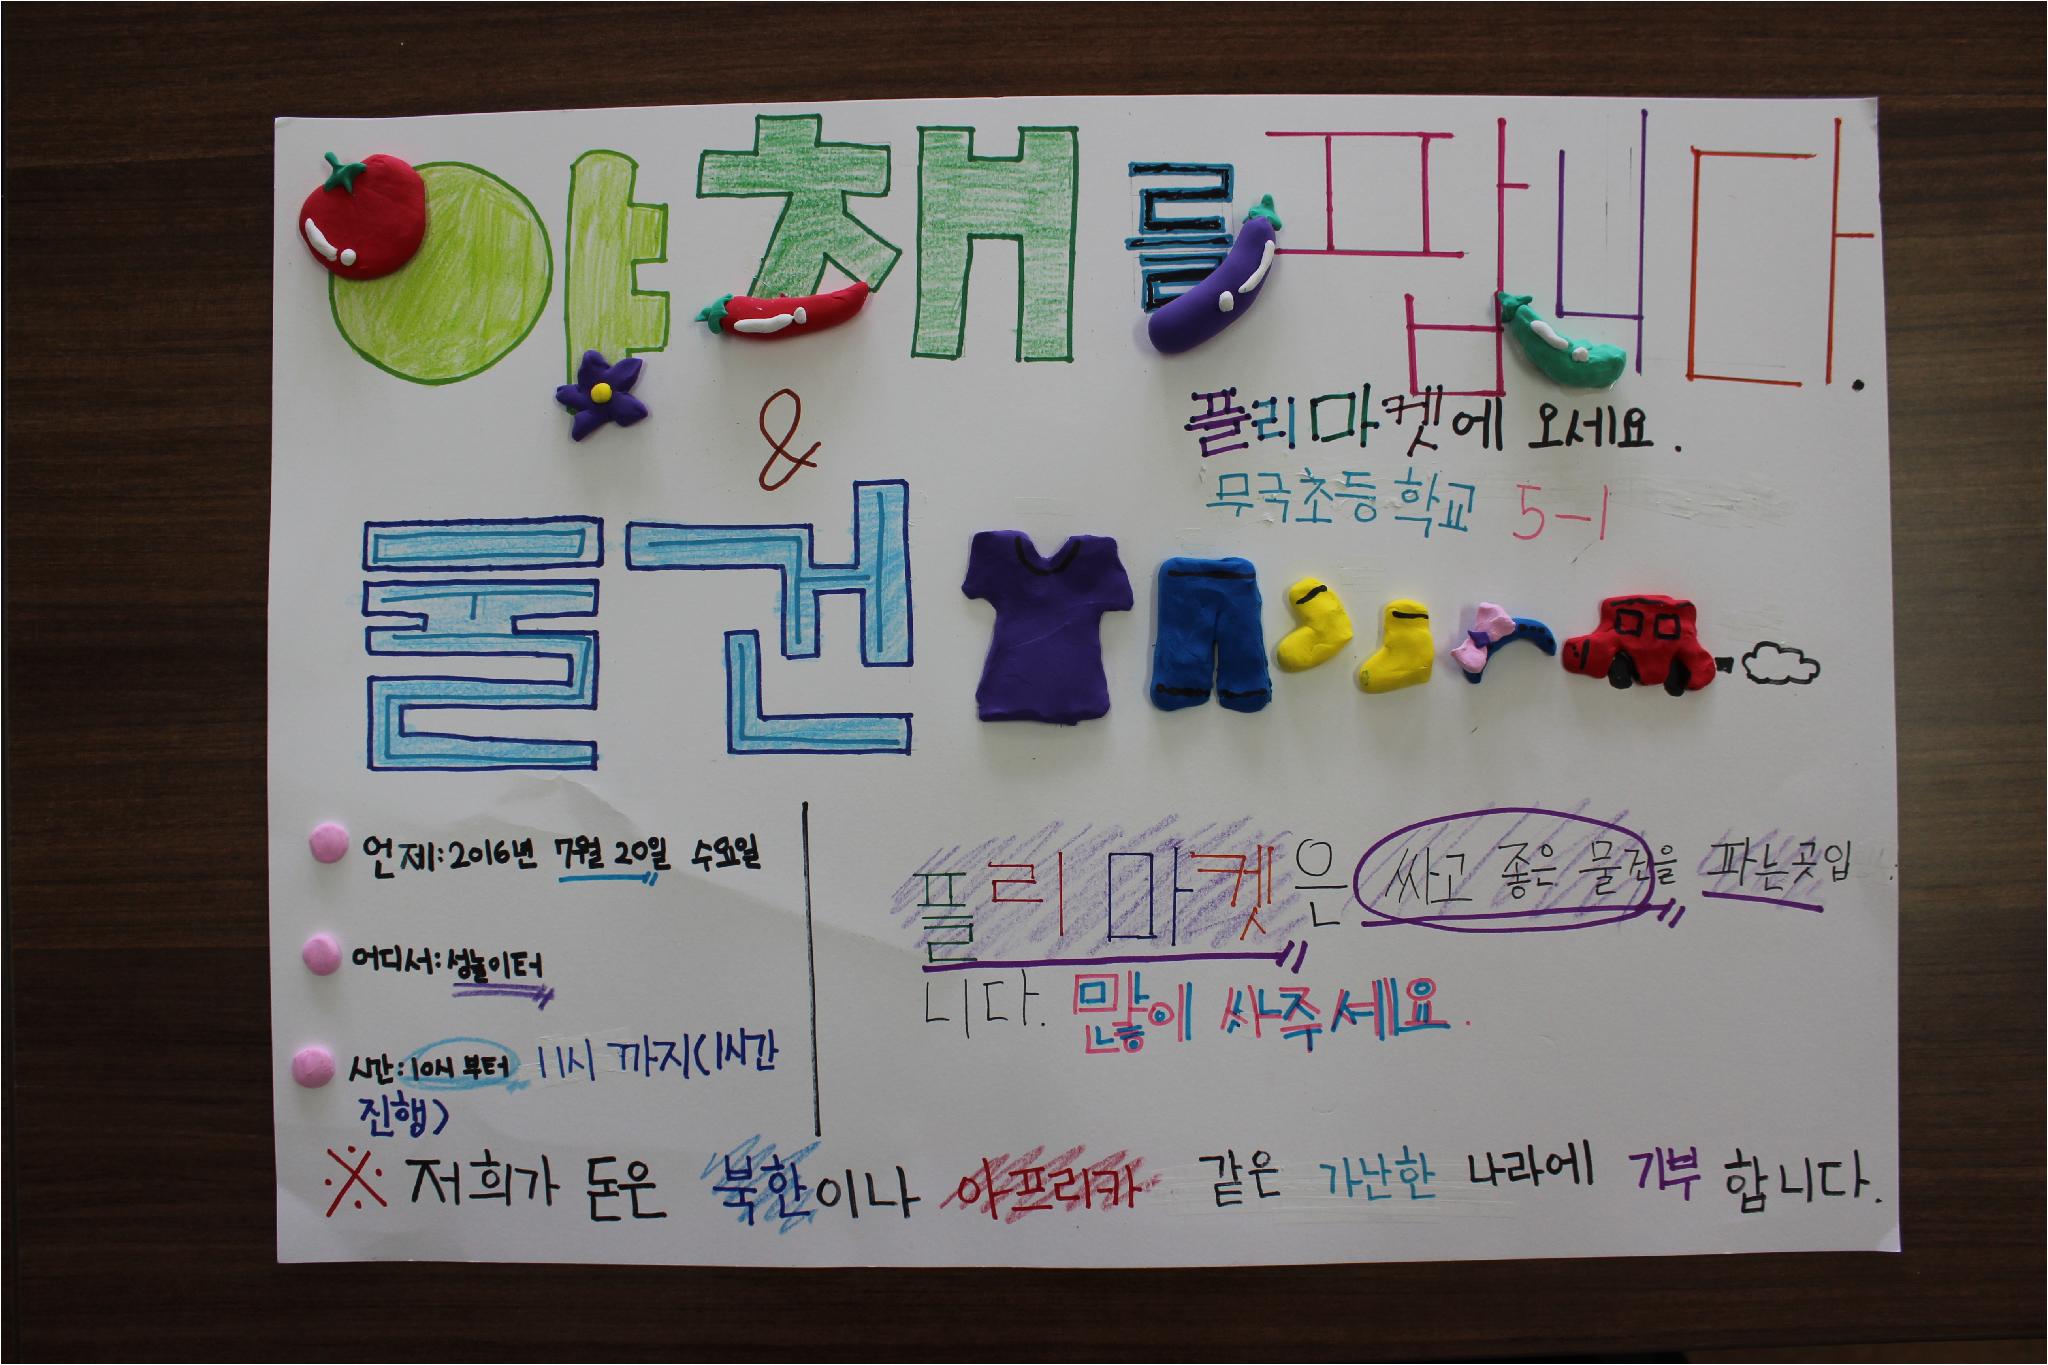 야채를 팝니다.
&
물건
플리마켓에 오세요.
무극초등학교 5-1
언제:2016년 7월 20일 수요일
어디서:성놀이터
시간:10시 부터 11시 까지(1시간
진행)
플리마켓은 싸고 좋은 물건을 파는곳입
니다. 많이 싸주세요.
※ 저희가 돈은 북한이나 아프리카 같은 가난한 나라에 기부 합니다.